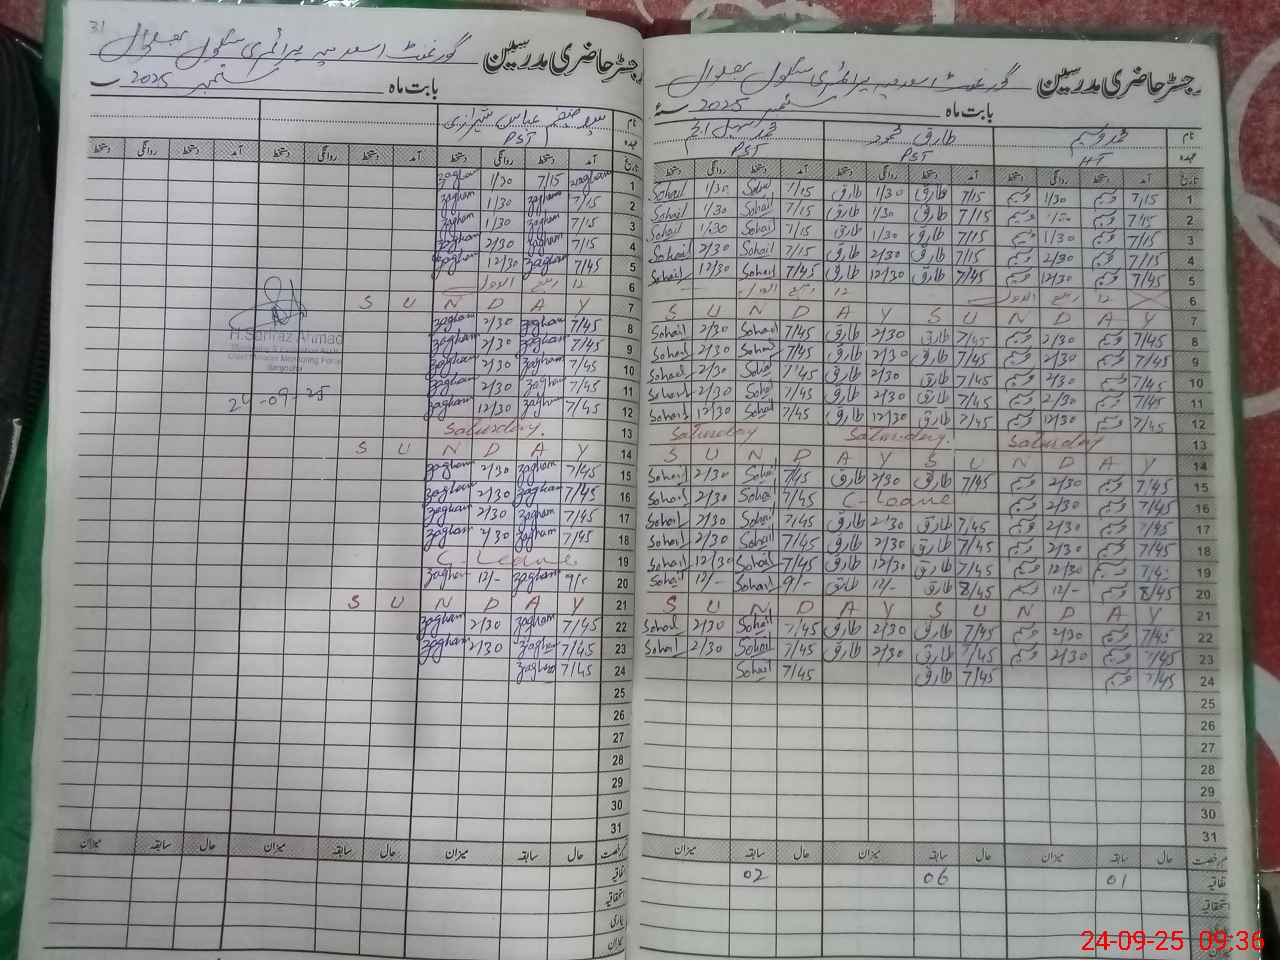 رجسٹر حاضری مدرسین
بابت ماہ ستمبر 2025
نام محمد وسیم طارق محمود
عہدہ HT PST PST
تاریخ آمد دستخط روانگی دستخط آمد دستخط روانگی دستخط آمد دستخط روانگی دستخط
1 7/15 وسیم 1/30 وسیم 7/15 طارق 1/30 طارق 7/15 Sohail 1/30 Sohail
2 7/15 وسیم وسیم 7/15 طارق 1/30 طارق 7/15 Sohail 1/30 Sohail
3 7/15 وسیم 1/30 وسیم 7/15 طارق 1/30 طارق 7/15 Sohail 1/30 Sohail
4 7/15 وسیم 2/30 وسیم 7/15 طارق 2/30 طارق 7/15 Sohail 2/30 Sohail
5 7/45 وسیم 12/30 وسیم 7/45 طارق 12/30 طارق 7/45 Sohail 12/30 Sohail
6 12 ربیع الاول 12 ربیع الاول
7 S U N D A Y S U N D A Y
8 7/45 وسیم 2/30 وسیم 7/45 طارق 2/30 طارق 7/45 Sohail 2/30 Sohail
9 7/45 وسیم 2/30 وسیم 7/45 طارق 2/30 طارق 7/45 Sohail 2/30 Sohail
10 7/45 وسیم 2/30 وسیم 7/45 طارق 2/30 طارق 7/45 Sohail 2/30 Sohail
11 7/45 وسیم 2/30 وسیم 7/45 طارق 2/30 طارق 7/45 Sohail 2/30 Sohail
12 7/45 وسیم 12/30 وسیم 7/45 طارق 12/30 طارق 7/45 Sohail 12/30 Sohail
13 Saturday Saturday Saturday
14 S U N D A Y S U N D A Y
15 7/45 وسیم 2/30 وسیم 7/45 طارق 2/30 طارق 7/45 Sohail 2/30 Sohail
16 7/45 وسیم 2/30 وسیم C-Leave 7/45 Sohail 2/30 Sohail
17 7/45 وسیم 2/30 وسیم 7/45 طارق 2/30 طارق 7/45 Sohail 2/30 Sohail
18 7/45 وسیم 2/30 وسیم 7/45 طارق 2/30 طارق 7/45 Sohail 2/30 Sohail
19 وسیم 12/30 وسیم 7/45 طارق 12/30 طارق 7/45 Sohail 12/30 Sohail
20 8/45 وسیم 12/- وسیم 8/45 طارق 12/- طارق 9/- Sohail 12/- Sohail
21 S U N D A Y S U N D A Y
22 7/45 وسیم 2/30 وسیم 7/45 طارق 2/30 طارق 7/45 Sohail 2/30 Sohail
23 7/45 وسیم 2/30 وسیم 7/45 طارق 2/30 طارق 7/45 Sohail 2/30 Sohail
24 7/45 وسیم 7/45 طارق 7/45 Sohail
25
26
27
28
29
30
31
حال سابقہ میزان حال سابقہ میزان حال سابقہ میزان
01 06 02
رجسٹر حاضری مدرسین
31
بابت ماہ ستمبر 2025
نام عباس شیرازی
عہدہ PST
تاریخ آمد دستخط روانگی دستخط آمد دستخط روانگی دستخط آمد دستخط روانگی دستخط
1 zagham 7/15 1/30 zagham
2 7/15 zagham 1/30 zagham
3 7/15 zagham 1/30 zagham
4 7/15 zagham 2/30 zagham
5 7/45 zagham 12/30 zagham
6 12 ربیع الاول
7 S U N D A Y
8 7/45 zagham 2/30 zagham
9 7/45 zagham 2/30 zagham
10 7/45 zagham 2/30 zagham
11 7/45 zagham 2/30 zagham
12 7/45 zagham 12/30 zagham
13 Saturday.
14 S U N D A Y
15 7/45 zagham 2/30 zagham
16 7/45 zagham 2/30 zagham
17 7/45 zagham 2/30 zagham
18 7/45 zagham 2/30 zagham
19 C-Leave
20 zagham 12/- zagham
21 S U N D A Y
22 7/45 zagham 2/30 zagham
23 7/45 zagham 2/30 zagham
24 7/45 zagham
25
26
27
28
29
30
31
حال سابقہ میزان حال سابقہ میزان حال سابقہ میزان
H.Sarfraz Ahmad
Chief Minister Monitoring Force
Sargodha
24-09-25
24-09-25 09:36